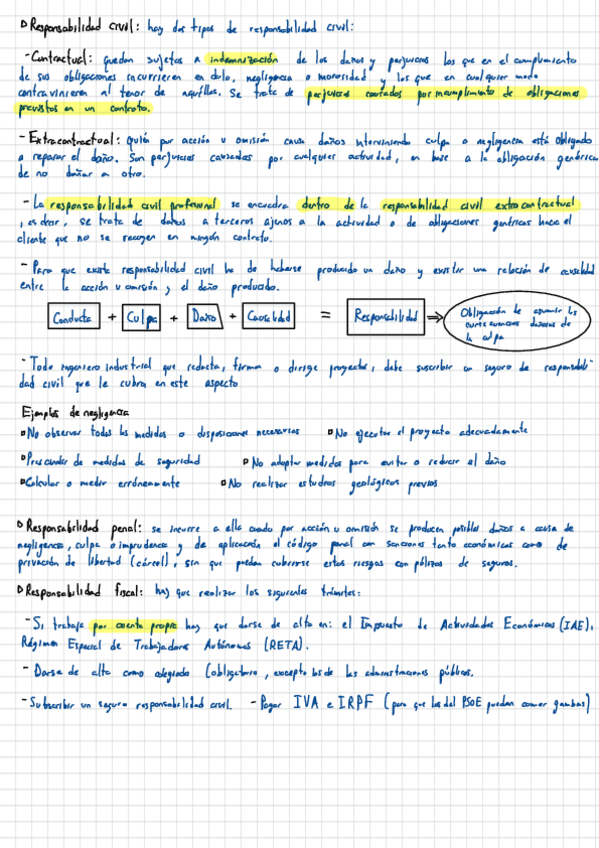 Responsabilidad civil: hay dos tipos de responsabilidad civil:
- Contractual: quedan sujetos a indemnización de los daños y perjuicios los que en el cumplimiento
de sus obligaciones incurrieren en dolo, negligencia o morosidad y los que en cualquier modo
contravinieren al tenor de aquéllas. Se trata de perjuicios causados por incumplimiento de obligaciones
previstas en un contrato.
- Extracontractual: quién por acción u omisión causa daños interviniendo culpa o negligencia está obligado
a reparar el daño. Son perjuicios causados por cualquier actividad, en base a la obligación genérica
de no dañar a otro.
- La responsabilidad civil profesional se encuadra dentro de la responsabilidad civil extracontractual
, es decir, se trata de daños a terceros ajenos a la actividad o de obligaciones genéricas hacia el
cliente que no se recogen en ningún contrato.
- Para que exista responsabilidad civil ha de haberse producido un daño y existir una relación de causalidad
entre la acción u omisión y el daño producido.
Conducta + Culpa + Daño + Causalidad = Responsabilidad ⇒ Obligación de asumir las
consecuencias dañosas de
la culpa
- Todo ingeniero industrial que redacta, firma o dirige proyectos, debe suscribir un seguro de responsabili-
dad civil que le cubra en este aspecto
Ejemplos de negligencia
No observar todas las medidas o disposiciones necesarias No ejecutar el proyecto adecuadamente
Prescindir de medidas de seguridad No adoptar medidas para evitar o reducir el daño
Calcular o medir erróneamente No realizar estudios geológicos previos
Responsabilidad penal: se incurre a ella cuando por acción u omisión se producen posibles daños a causa de
negligencia, culpa o imprudencia y de aplicación el código penal con sanciones tanto económicas como de
privación de libertad (cárcel), sin que puedan cubrirse estos riesgos con pólizas de seguros.
Responsabilidad fiscal: hay que realizar los siguientes trámites:
- Si trabaja por cuenta propia hay que darse de alta en: el Impuesto de Actividades Económicas (IAE),
Régimen Especial de Trabajadores Autónomos (RETA).
- Darse de alta como colegiado (obligatorio, excepto los de las administraciones públicas.
- Subscribir un seguro responsabilidad civil. - Pagar IVA e IRPF (para que los del PSOE puedan comer gambas)